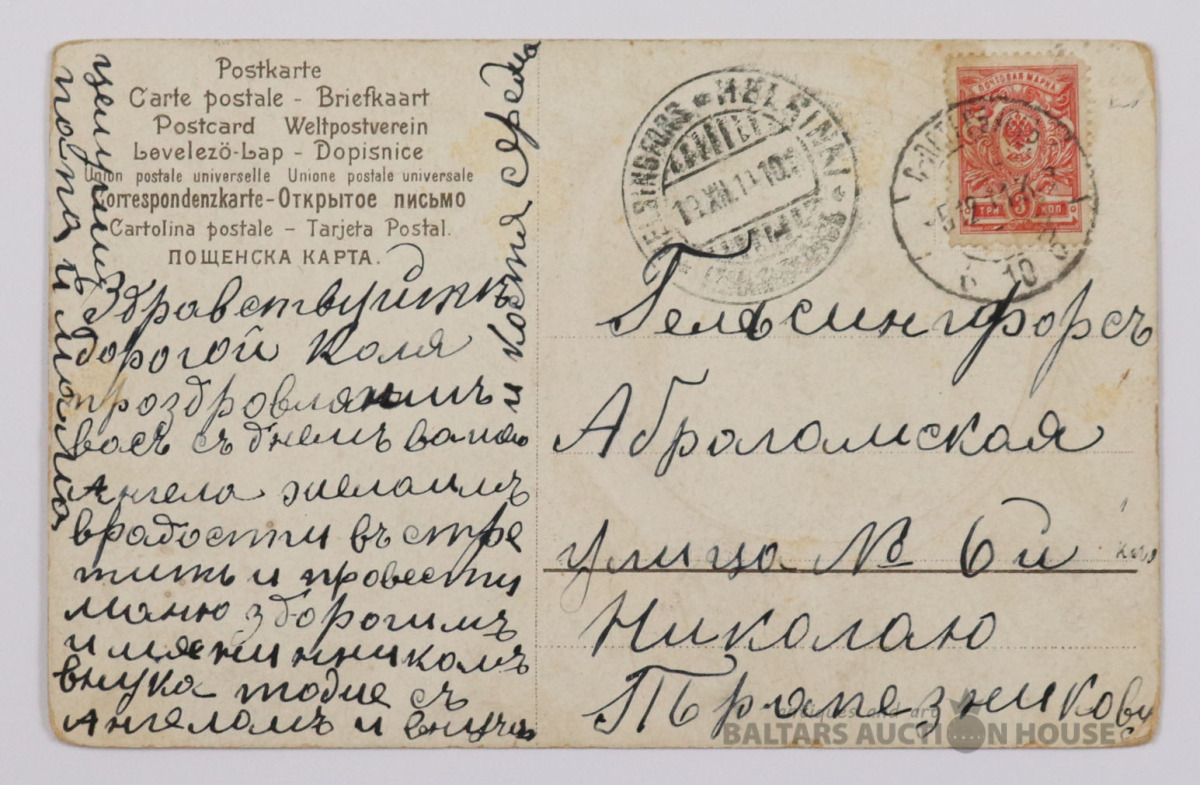 Postkarte
Carte postale - Briefkaart
Postcard Weltpostverein
Levelező-Lap - Dopisnice
Union postale universelle Unione postale universale
Correspondenzkarte-Открытое письмо
Cartolina postale - Tarjeta Postal.
ПОЩЕНСКА КАРТА.
Здравствуйтиъ
дорогой Коля
проздровляимъ
васъ съ днемъ вашево
Ангела жиелаимъ
врадости въ стре
тить и провести
маню здорогимъ
имянинникомъ
внука тоже съ
Ангеломъ и
целуимъ
папа и мама
и костя
HELSINGFORS - HELSINKI
19.XII.11-10
ПОЧТОВАЯ МАРКА
ТРИ 3 КОП
Гельсингфорсъ
Аброгамская
улица № 6й
Николаю
Пърапезникову
antiques and art
BALTARS AUCTION HOUSE